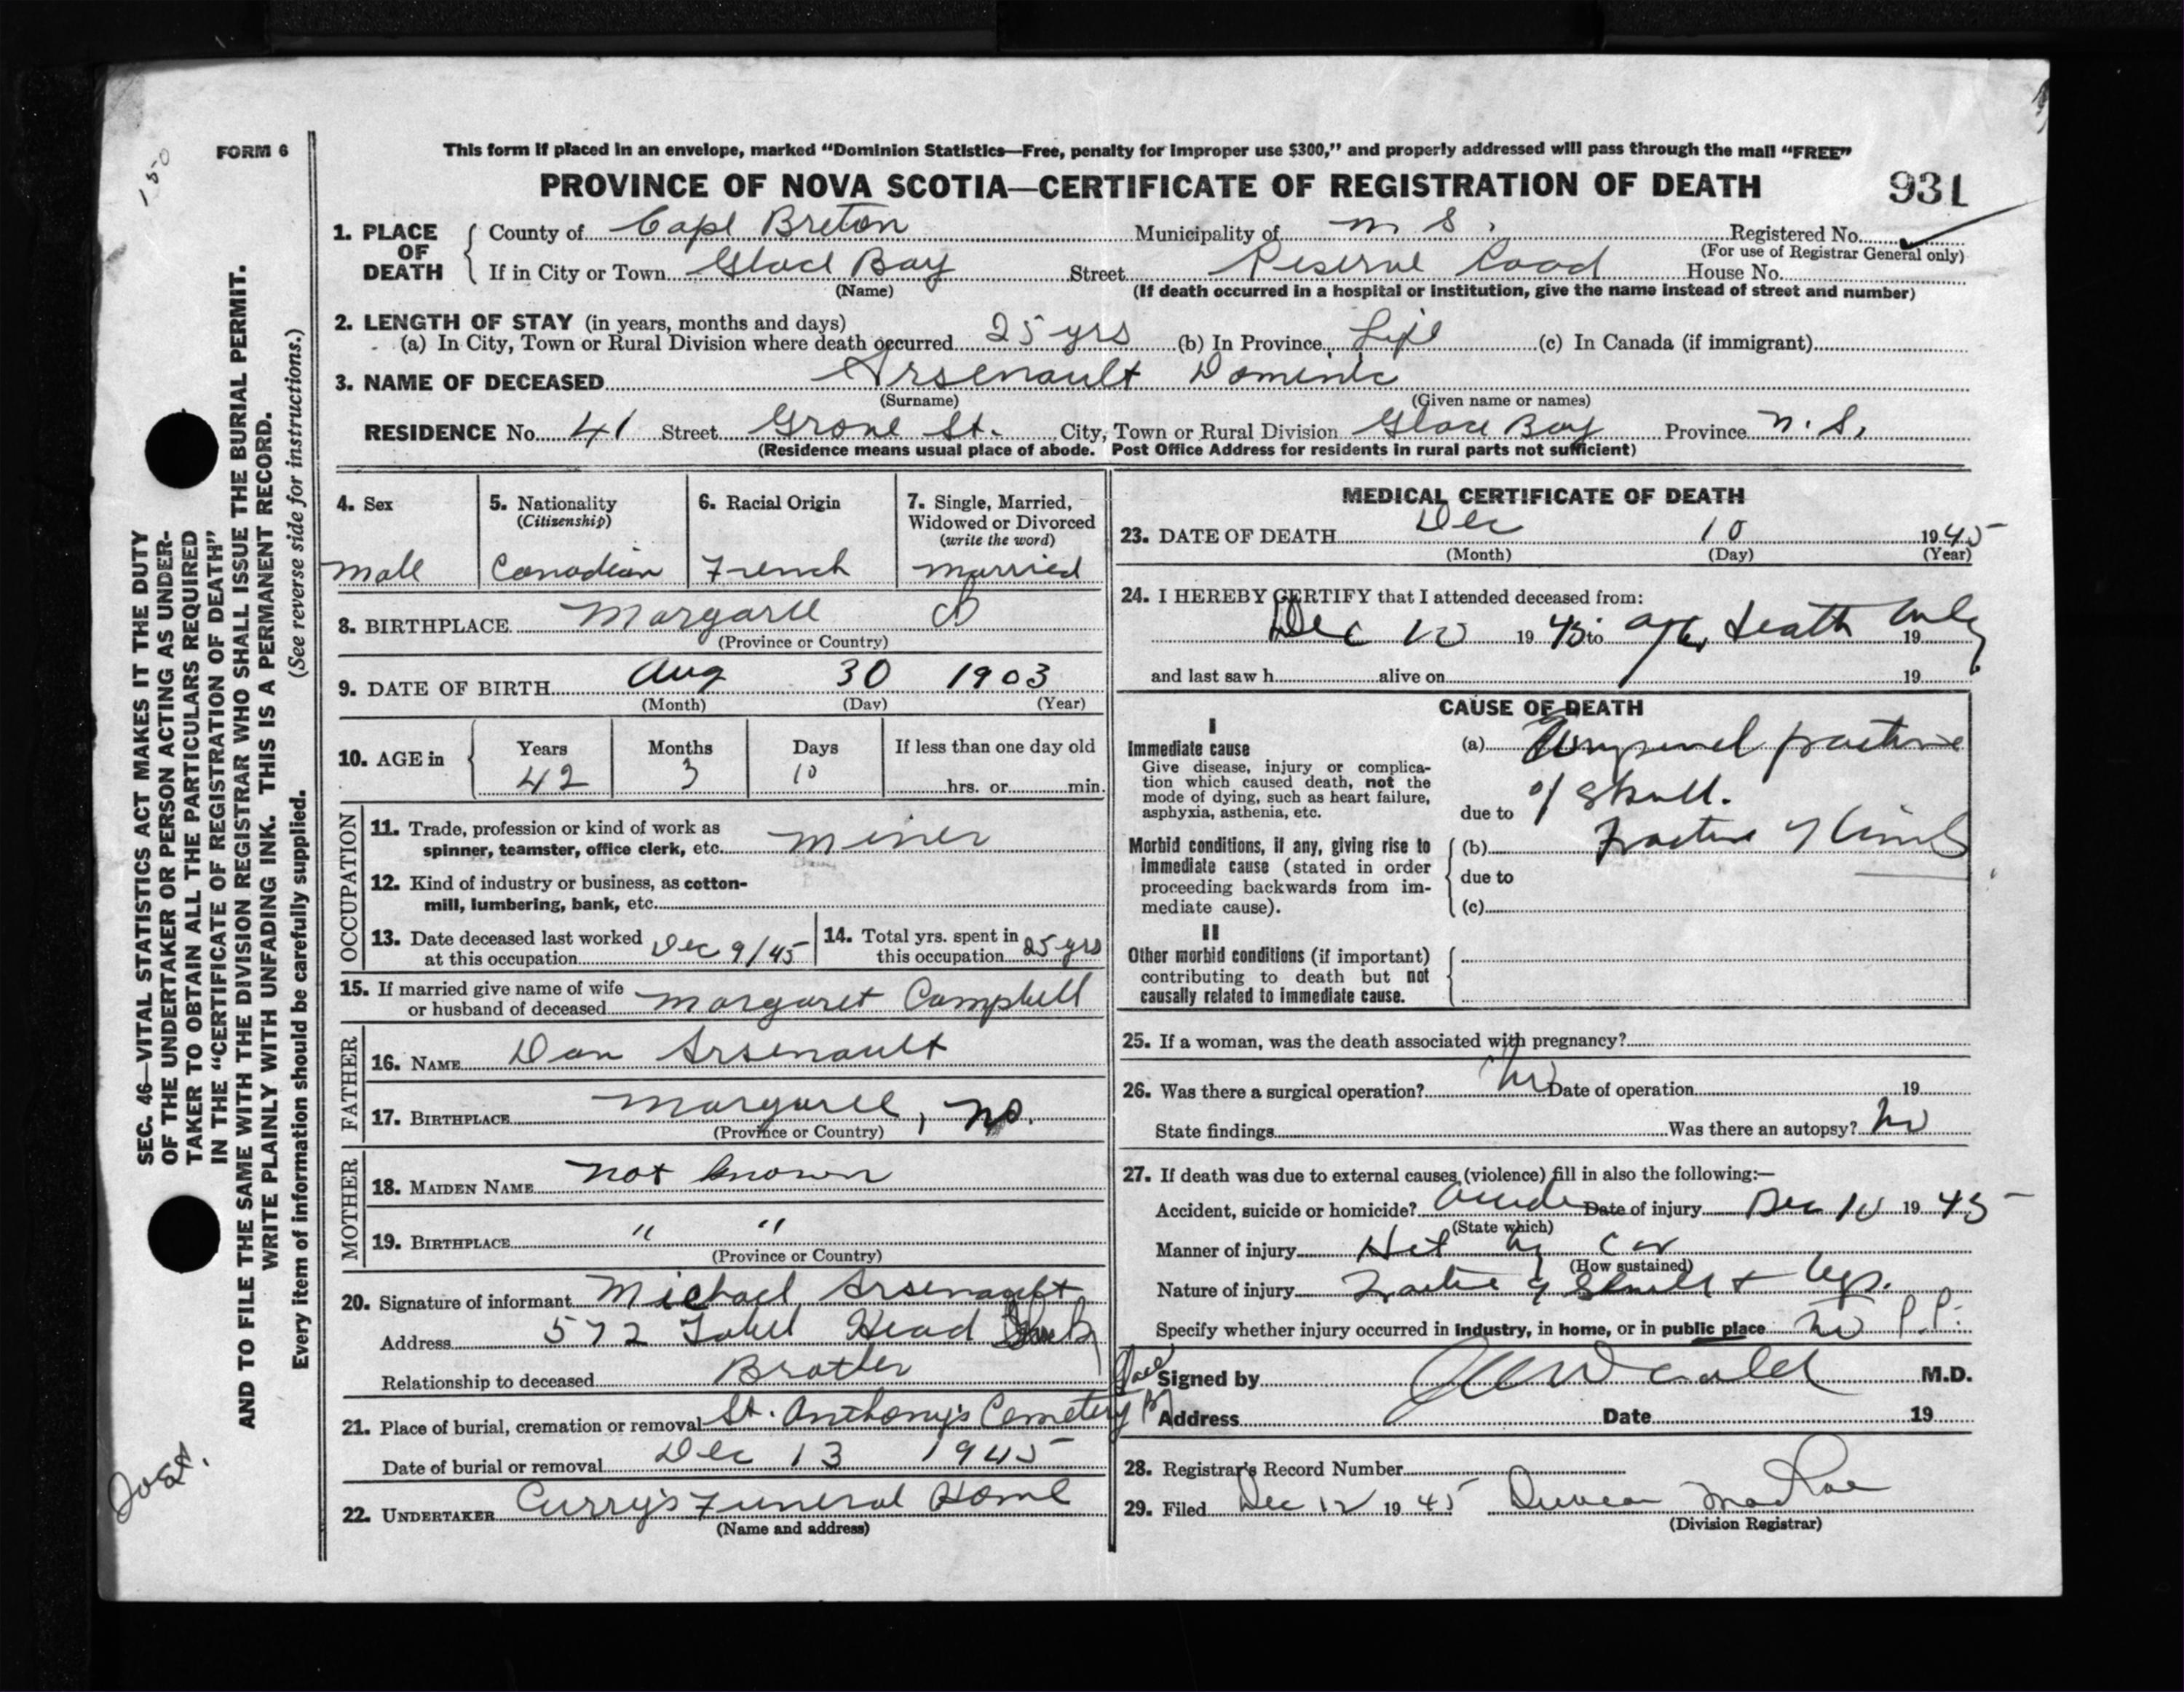 FORM 6
This form if placed in an envelope, marked “Dominion Statistics—Free, penalty for improper use $300,” and properly addressed will pass through the mail “FREE”
PROVINCE OF NOVA SCOTIA—CERTIFICATE OF REGISTRATION OF DEATH 931
1. PLACE OF DEATH
County of Cape Breton Municipality of Registered No.
(For use of Registrar General only)
If in City or Town Glace Bay Street Reserve Road House No.
(Name) (If death occurred in a hospital or institution, give the name instead of street and number)
2. LENGTH OF STAY (in years, months and days)
(a) In City, Town or Rural Division where death occurred 25 yrs (b) In Province Life (c) In Canada (if immigrant)
3. NAME OF DECEASED Arsenault Dominic
(Surname) (Given name or names)
RESIDENCE No. 41 Street Grove St. City, Town or Rural Division Glace Bay Province N.S.
(Residence means usual place of abode. Post Office Address for residents in rural parts not sufficient)
4. Sex Male
5. Nationality (Citizenship) Canadian
6. Racial Origin French
7. Single, Married, Widowed or Divorced (write the word) Married
8. BIRTHPLACE Margaree
(Province or Country)
9. DATE OF BIRTH Aug 30 1903
(Month) (Day) (Year)
10. AGE in Years 42 Months 3 Days 10 If less than one day old
hrs. or min.
OCCUPATION
11. Trade, profession or kind of work as
spinner, teamster, office clerk, etc. Miner
12. Kind of industry or business, as cotton-
mill, lumbering, bank, etc.
13. Date deceased last worked
at this occupation Dec 9/45
14. Total yrs. spent in
this occupation 25 yrs
15. If married give name of wife
or husband of deceased Margaret Campbell
FATHER
16. NAME Dan Arsenault
17. BIRTHPLACE Margaree, NS.
(Province or Country)
MOTHER
18. MAIDEN NAME not known
19. BIRTHPLACE " "
(Province or Country)
20. Signature of informant Michael Arsenault
Address 572 Table Head
Relationship to deceased Brother
21. Place of burial, cremation or removal St. Anthony's Cemetery
Date of burial or removal Dec 13 1945
22. UNDERTAKER Curry's Funeral Home
(Name and address)
MEDICAL CERTIFICATE OF DEATH
23. DATE OF DEATH Dec 10 1945
(Month) (Day) (Year)
24. I HEREBY CERTIFY that I attended deceased from:
Dec 10 1945 to after death only 19
and last saw h alive on 19
CAUSE OF DEATH
I
Immediate cause
Give disease, injury or complica-
tion which caused death, not the
mode of dying, such as heart failure,
asphyxia, asthenia, etc.
(a) fracture
due to of skull.
Morbid conditions, if any, giving rise to
immediate cause (stated in order
proceeding backwards from im-
mediate cause).
(b) Fracture of limb
due to
(c)
II
Other morbid conditions (if important)
contributing to death but not
causally related to immediate cause.
25. If a woman, was the death associated with pregnancy?
26. Was there a surgical operation? No Date of operation 19
State findings Was there an autopsy? No
27. If death was due to external causes (violence) fill in also the following:—
Accident, suicide or homicide? Date of injury Dec 10 1945
(State which)
Manner of injury Hit by car
(How sustained)
Nature of injury Fracture of Skull + legs.
Specify whether injury occurred in industry, in home, or in public place No P.P.
Signed by M.D.
Address Date 19
28. Registrar's Record Number
29. Filed Dec 12 1945 Duncan MacRae
(Division Registrar)
SEC. 46—VITAL STATISTICS ACT MAKES IT THE DUTY
OF THE UNDERTAKER OR PERSON ACTING AS UNDER-
TAKER TO OBTAIN ALL THE PARTICULARS REQUIRED
IN THE “CERTIFICATE OF REGISTRATION OF DEATH”
AND TO FILE THE SAME WITH THE DIVISION REGISTRAR WHO SHALL ISSUE THE BURIAL PERMIT.
WRITE PLAINLY WITH UNFADING INK. THIS IS A PERMANENT RECORD.
Every item of information should be carefully supplied. (See reverse side for instructions.)
150